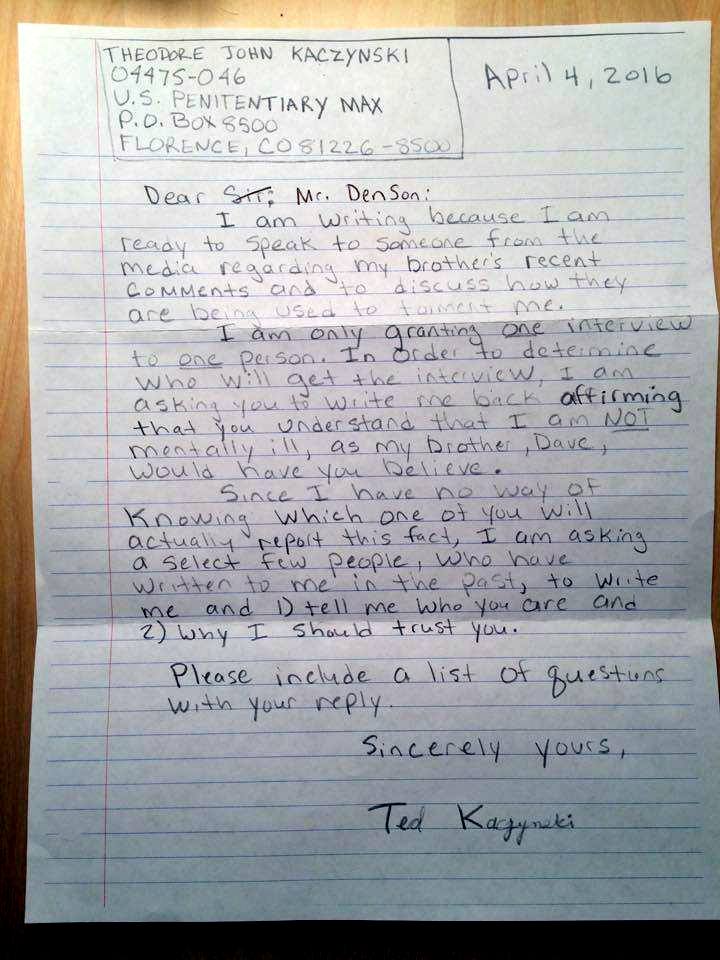 THEODORE JOHN KACZYNSKI
04475-046
U.S. PENITENTIARY MAX
P.O. BOX 8500
FLORENCE, CO 81226-8500
April 4, 2016
Dear Sir; Mr. Denson:
I am writing because I am
ready to speak to someone from the
media regarding my brother's recent
comments and to discuss how they
are being used to torment me.
I am only granting one interview
to one person. In order to determine
who will get the interview, I am
asking you to write me back affirming
that you understand that I am NOT
mentally ill, as my brother, Dave,
would have you believe.
Since I have no way of
knowing which one of you will
actually report this fact, I am asking
a select few people, who have
written to me in the past, to write
me and 1) tell me who you are and
2) why I should trust you.
Please include a list of questions
with your reply.
Sincerely yours,
Ted Kaczynski